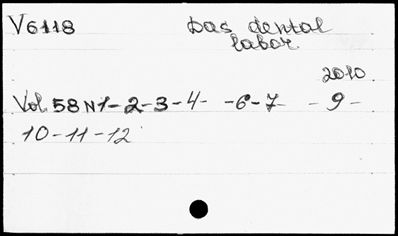 V6118 Das dental
labor
2010
Vol 58 N1-2-3-4- -6-7- -9-
10-11-12